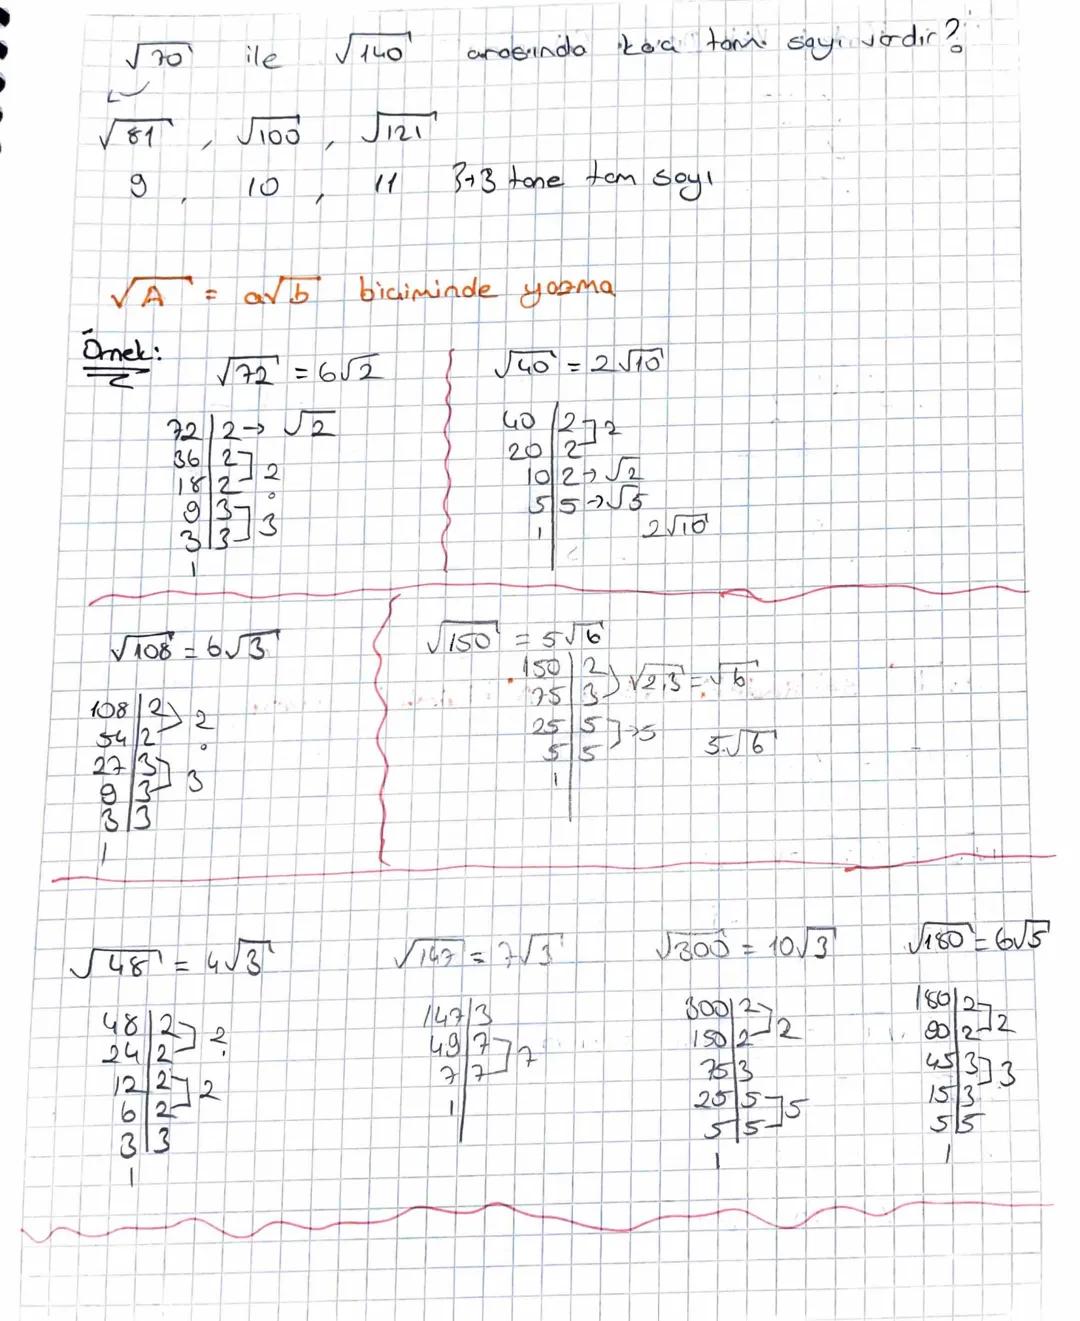 √70 ile √140 arasında kaç tam sayı vardır?
√81 , √100 , √121
9 , 10 , 11 3→3 tane tam sayı
√A = a√b biçiminde yazma
Örnek:
√72 = 6√2
72 | 2 → √2
36 | 2
18 | 2 ] 2
9 | 3 .
3 | 3 ] 3
1
√40 = 2√10
40 | 2
20 | 2 ] 2
10 | 2 → √2
5 | 5 → √5
1 2√10
√108 = 6√3
108 | 2
54 | 2 ] 2
27 | 3 .
9 | 3 ] 3
3 | 3
1
√150 = 5√6
150 | 2
75 | 3 ) √2.3 = √6
25 | 5
5 | 5 ] → 5 5.√6
1
√48 = 4√3
48 | 2
24 | 2 ] 2
12 | 2 .
6 | 2 ] 2
3 | 3
1
√147 = 7√3
147 | 3
49 | 7
7 | 7 ] 7
1
√300 = 10√3
300 | 2
150 | 2 ] 2
75 | 3
25 | 5
5 | 5 ] 5
1
√180 = 6√5
180 | 2
90 | 2 ] 2
45 | 3
15 | 3 ] 3
5 | 5
1